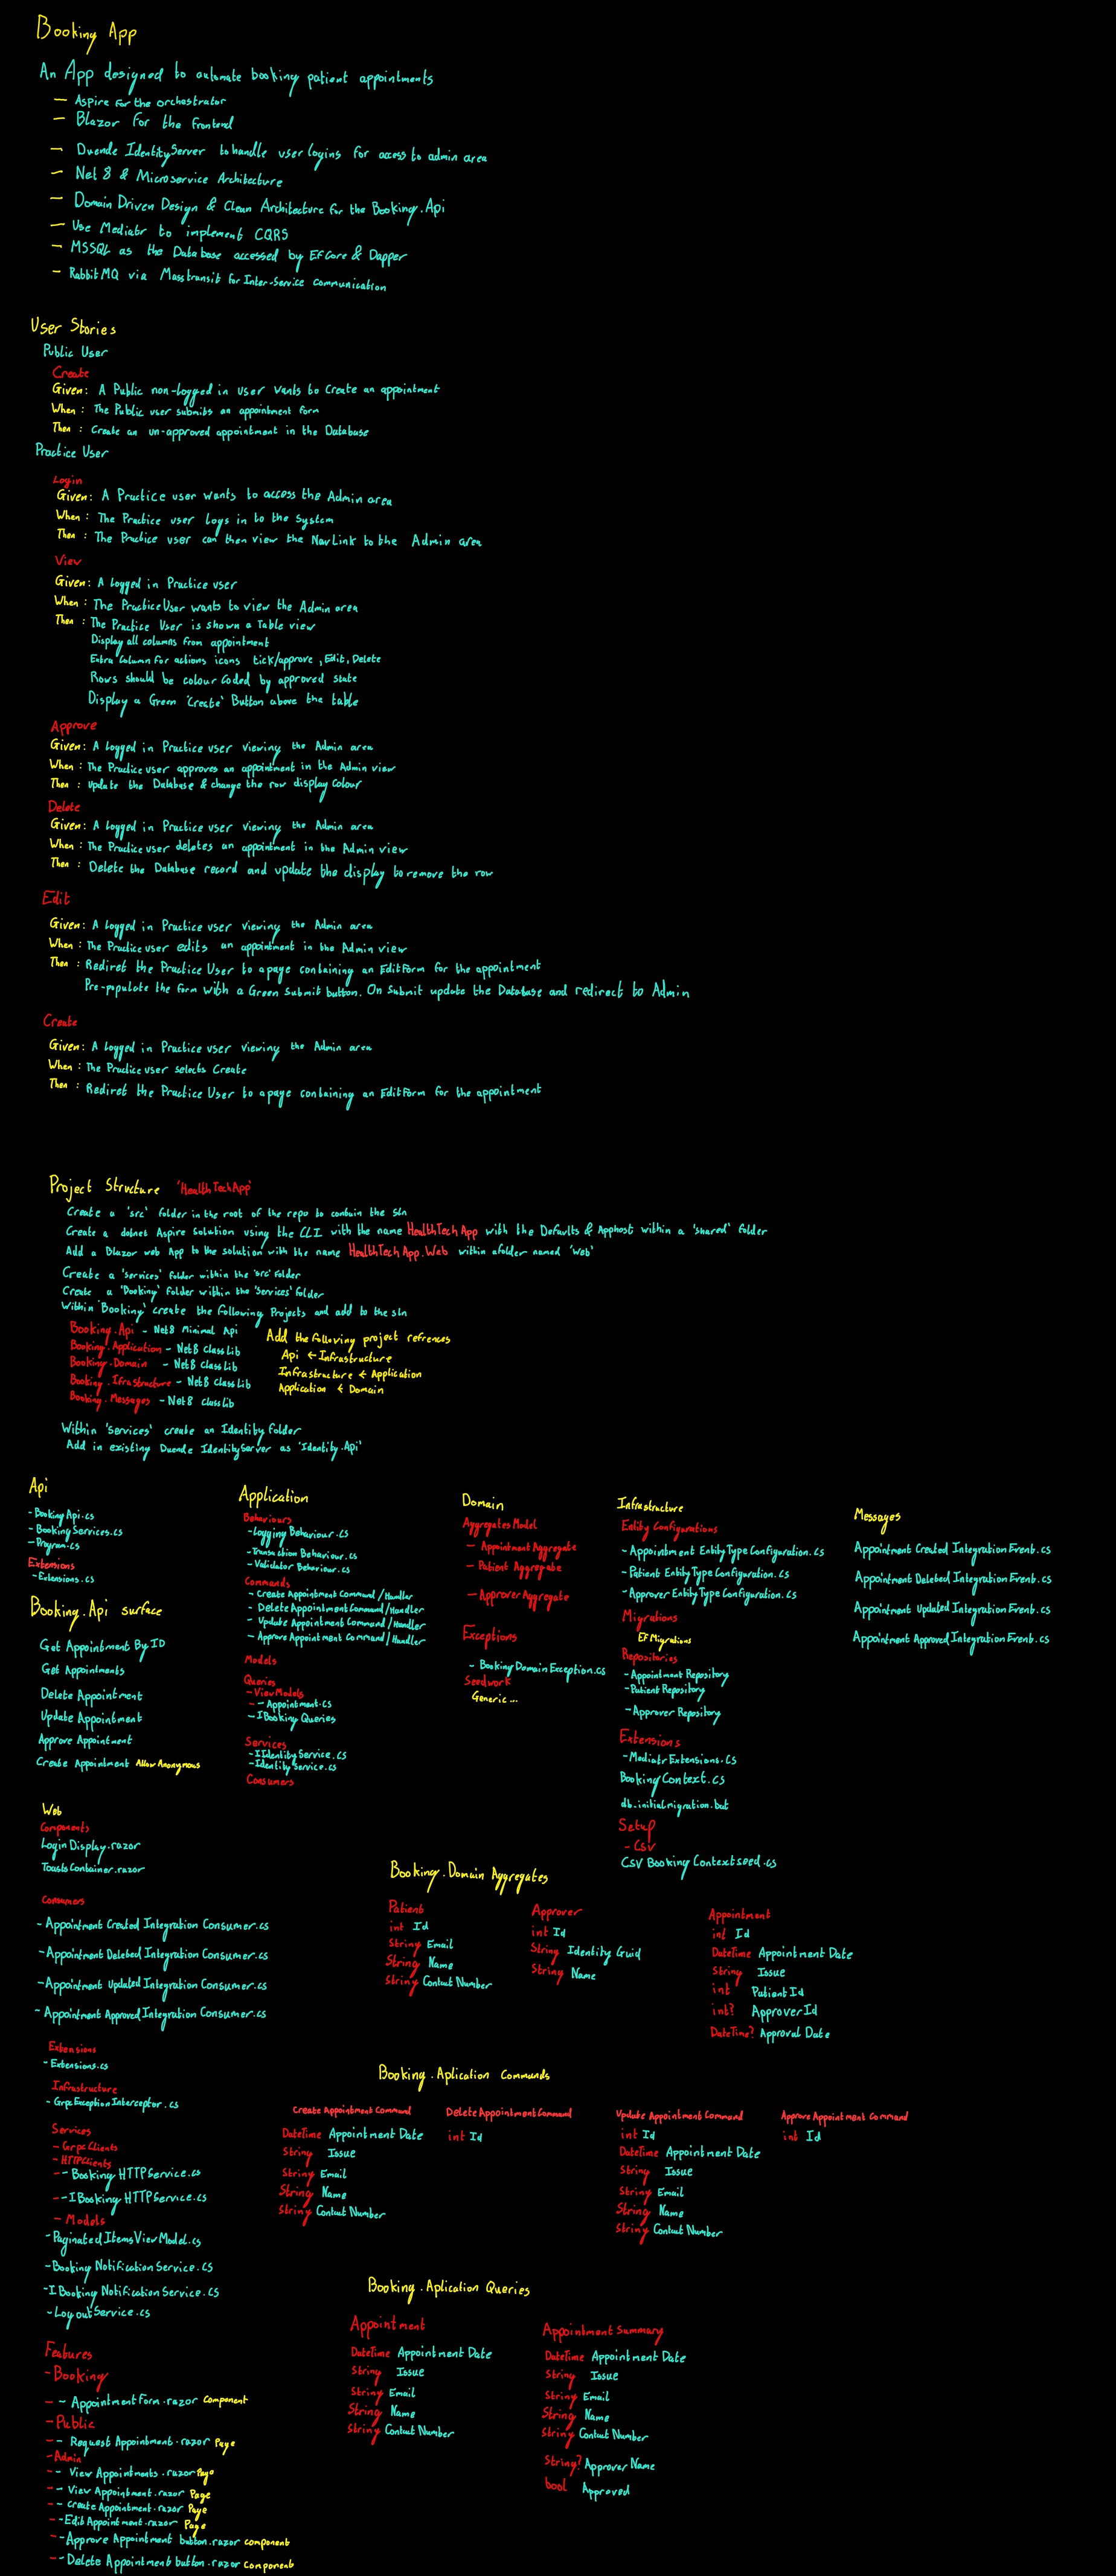 Booking App
An App designed to automate booking patient appointments
- Aspire for the orchestrator
- Blazor for the frontend
- Duende IdentityServer to handle user logins for access to admin area
- Net 8 & Microservice Architecture
- Domain Driven Design & Clean Architecture for the Booking.Api
- Use Mediatr to implement CQRS
- MSSQL as the Database accessed by EFCore & Dapper
- RabbitMQ via Masstransit for Inter-Service communication
User Stories
Public User
Create
Given: A Public non-logged in user wants to Create an appointment
When: The Public user submits an appointment form
Then: Create an un-approved appointment in the Database
Practice User
Login
Given: A Practice user wants to access the Admin area
When: The Practice user logs in to the system
Then: The Practice user can then view the NavLink to the Admin area
View
Given: A Logged in Practice user
When: The Practice User wants to view the Admin area
Then: The Practice User is shown a Table view
Display all columns from appointment
Extra Column for actions icons tick/approve, Edit, Delete
Rows should be colour coded by approved state
Display a Green 'Create' Button above the table
Approve
Given: A Logged in Practice user viewing the Admin area
When: The Practice user approves an appointment in the Admin view
Then: Update the Database & change the row display Colour
Delete
Given: A Logged in Practice user viewing the Admin area
When: The Practice user deletes an appointment in the Admin view
Then: Delete the Database record and update the display to remove the row
Edit
Given: A Logged in Practice user viewing the Admin area
When: The Practice user edits an appointment in the Admin view
Then: Rediret the Practice User to a page containing an EditForm for the appointment
Pre-populate the form with a Green Submit button. On Submit update the Database and redirect to Admin
Create
Given: A Logged in Practice user viewing the Admin area
When: The Practice user selects Create
Then: Rediret the Practice User to a page containing an EditForm for the appointment
Project Structure 'HealthTechApp'
Create a 'src' folder in the root of the repo to contain the sln
Create a dotnet Aspire Solution using the CLI with the name HealthTechApp with the Defaults & Apphost within a 'shared' folder
Add a Blazor web App to the solution with the name HealthTechApp.Web within a folder named 'Web'
Create a 'services' folder within the 'src' folder
Create a 'Booking' folder within the 'Services' folder
Within 'Booking' create the following Projects and add to the sln
Booking.Api - Net8 Minimal Api
Booking.Application - Net8 ClassLib
Booking.Domain - Net8 ClassLib
Booking.Ifrastructure - Net8 ClassLib
Booking.Messages - Net8 ClassLib
Add the following project refrences
Api ← Infrastructure
Infrastructure ← Application
Application ← Domain
Within 'Services' create an Identity folder
Add in existing Duende IdentityServer as 'Identity.Api'
Api
- BookingApi.cs
- BookingServices.cs
- Program.cs
Extensions
- Extensions.cs
Booking.Api surface
Get Appointment By ID
Get Appointments
Delete Appointment
Update Appointment
Approve Appointment
Create Appointment Allow Anonymous
Application
Behaviours
- Logging Behaviour.cs
- Transaction Behaviour.cs
- Validator Behaviour.cs
Commands
- Create Appointment Command/Handler
- Delete Appointment Command/Handler
- Update Appointment Command/Handler
- Approve Appointment Command/Handler
Models
Queries
- ViewModels
- - Appointment.cs
- IBooking Queries
Services
- IIdentityService.cs
- IdentityService.cs
Consumers
Domain
Aggregates Model
- Appointment Aggregate
- Patient Aggregate
- Approver Aggregate
Exceptions
- Booking Domain Exception.cs
Seedwork
Generic...
Infrastructure
Entity Configurations
- Appointment Entity Type Configuration.cs
- Patient Entity Type Configuration.cs
- Approver Entity Type Configuration.cs
Migrations
EF Migrations
Repositories
- Appointment Repository
- Patient Repository
- Approver Repository
Extensions
- Mediatr Extensions.cs
Booking Context.cs
db.initialmigration.bat
Setup
- CSV
CSV Booking Contextseed.cs
Messages
Appointment Created Integration Event.cs
Appointment Deleted Integration Event.cs
Appointment Updated Integration Event.cs
Appointment Approved Integration Event.cs
Web
Components
Login Display.razor
ToastsContainer.razor
Consumers
- Appointment Created Integration Consumer.cs
- Appointment Deleted Integration Consumer.cs
- Appointment Updated Integration Consumer.cs
- Appointment Approved Integration Consumer.cs
Extensions
- Extensions.cs
Infrastructure
- GrpcExceptionInterceptor.cs
Services
- GrpcClients
- HTTPClients
- - Booking HTTPService.cs
- - IBooking HTTPService.cs
- Models
- PaginatedItemsViewModel.cs
- Booking Notification Service.cs
- IBooking Notification Service.cs
- LogoutService.cs
Features
- Booking
- - Appointment Form.razor Component
- Public
- - Request Appointment.razor Page
- Admin
- - View Appointments.razor Page
- - View Appointment.razor Page
- - Create Appointment.razor Page
- - Edit Appointment.razor Page
- - Approve Appointment button.razor component
- - Delete Appointment button.razor Component
Booking.Domain Aggregates
Patient
int Id
String Email
String Name
String Contact Number
Approver
int Id
String Identity Guid
String Name
Appointment
int Id
DateTime Appointment Date
String Issue
int Patient Id
int? ApproverId
DateTime? Approval Date
Booking.Aplication Commands
Create Appointment Command
DateTime Appointment Date
String Issue
String Email
String Name
String Contact Number
Delete Appointment Command
int Id
Update Appointment Command
int Id
DateTime Appointment Date
String Issue
String Email
String Name
String Contact Number
Approve Appointment Command
int Id
Booking.Aplication Queries
Appointment
DateTime Appointment Date
String Issue
String Email
String Name
String Contact Number
Appointment Summary
DateTime Appointment Date
String Issue
String Email
String Name
String Contact Number
String? Approver Name
bool Approved